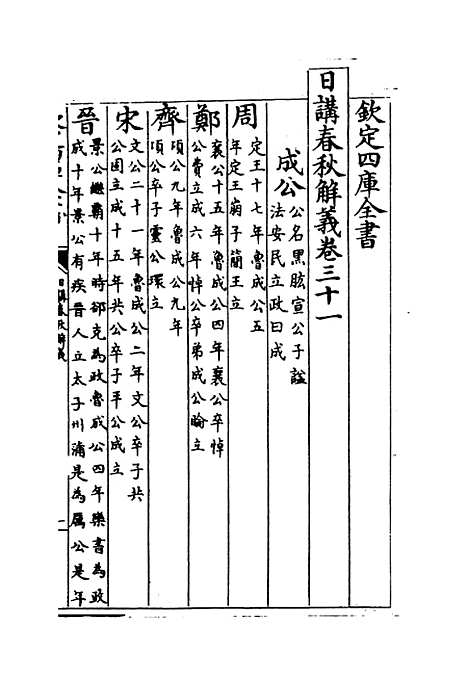 欽定四庫全書
日講春秋解義卷三十一
成公 公名黑肱宣公子謚
法安民立政曰成
周 定王十七年魯成公五
年定王崩子簡王立
鄭 襄公十五年魯成公四年襄公卒悼
公費立成六年悼公卒弟成公睔立
齊 頃公九年魯成公九年
頃公卒子靈公環立
宋 文公二十一年魯成公二年文公卒子共
公固立成十五年共公卒子平公成立
晉 景公繼霸十年時郤克為政魯成公四年欒書為政
成十年景公有疾晉人立太子州蒲是為厲公是年
日講春秋解義
一